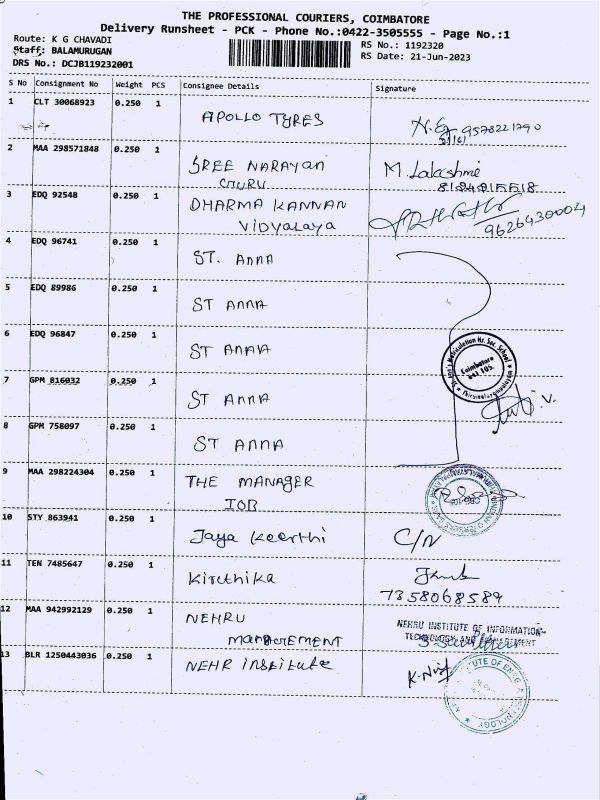 THE PROFESSIONAL COURIERS, COIMBATORE
Delivery Runsheet - PCK - Phone No.:0422-3505555 - Page No.:1
Route: K G CHAVADI
Staff: BALAMURUGAN
DRS No.: DCJB119232001
RS No.: 1192320
RS Date: 21-Jun-2023
S No Consignment No Weight PCS Consignee Details Signature
1 CLT 30068923 0.250 1 APOLLO TYRES
9578221790
2 MAA 298571848 0.250 1 SREE NARAYAN
GURU
M. Lakshmi
3 EDQ 92548 0.250 1 DHARMA KANNAN
VIDYALAYA
9626430004
4 EDQ 96741 0.250 1 ST. ANNA
5 EDQ 89986 0.250 1 ST ANNA
6 EDQ 96847 0.250 1 ST ANNA
St. Anna's Matriculation Hr. Sec. School
Coimbatore
641 105.
7 GPM 816032 0.250 1 ST ANNA
8 GPM 758097 0.250 1 ST ANNA
9 MAA 298224304 0.250 1 THE MANAGER
IOB
10 STY 863941 0.250 1 Jaya Keerthi C/N
11 TEN 7485647 0.250 1 Kiruthika
7358068589
12 MAA 942992129 0.250 1 NEHRU
MANAGEMENT
NEHRU INSTITUTE OF INFORMATION
TECHNOLOGY AND MANAGEMENT
13 BLR 1250443036 0.250 1 NEHR institute